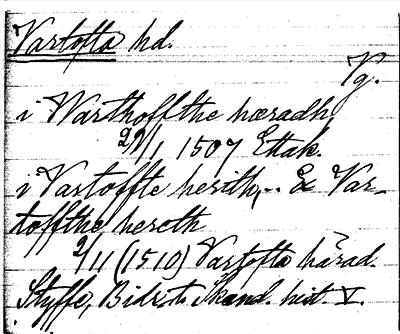 Vartofta hd.
Vg.
i Warthoffthe hæradh,
29/1 1507 Ettak.
i Vartoffte herith, .. & Var-
toffthe hereth
2/11 (1510) Vartofta härad.
Styffe, Bidr. t. Skand. hist. V.